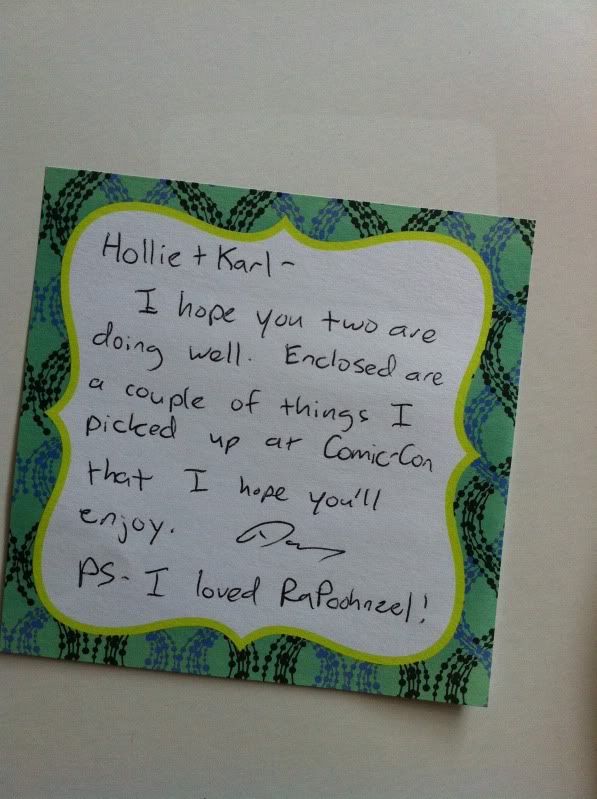 Hollie + Karl -
I hope you two are
doing well. Enclosed are
a couple of things I
picked up at Comic-Con
that I hope you'll
enjoy.
PS- I loved RaPoohnzel!